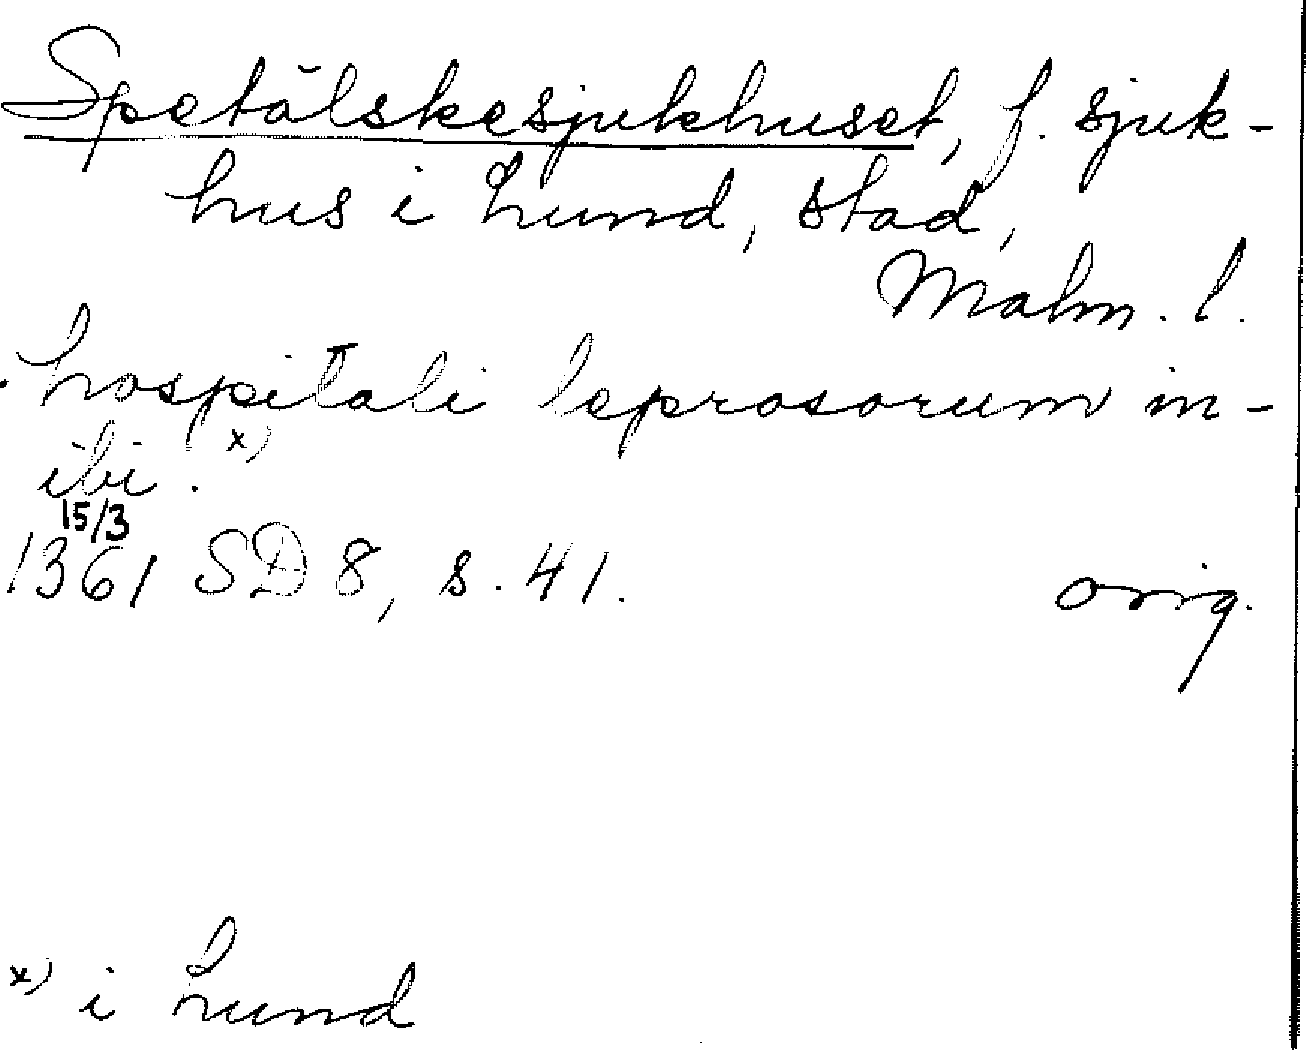 Spetälskesjukhuset, f. sjuk-
hus i Lund, stad,
Malm. l.
hospitali leprosorum in-
ibi. x)
15/3
1361 SD 8, s. 41. orig.
x) i Lund